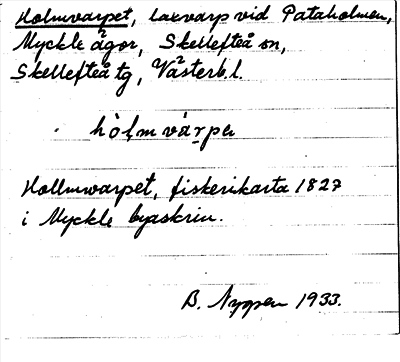 Holmvarpet, laxvarp vid Pataholmen,
Myckle ägor, Skellefteå sn,
Skellefteå tg, Västerb. l.
hòlmvárpə
Hollmwarpet, fiskerikarta 1827
i Myckle byaskrin.
B. Nyppen 1933.